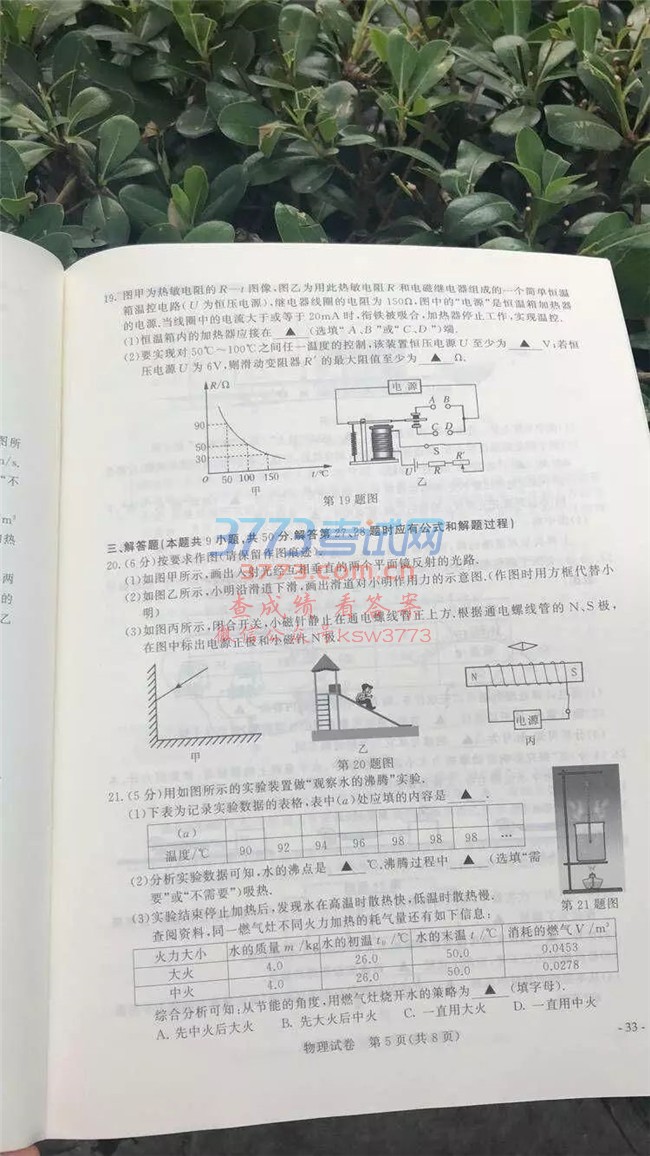 19. 图甲为热敏电阻的R—t图像,图乙为用此热敏电阻R和电磁继电器组成的一个简单恒温
箱温控电路(U为恒压电源),继电器线圈的电阻为150Ω,图中的"电源"是恒温箱加热器
的电源.当线圈中的电流大于或等于20mA时,衔铁被吸合,加热器停止工作,实现温控.
(1)恒温箱内的加热器应接在 ▲ (选填"A、B"或"C、D")端.
(2)要实现对50℃~100℃之间任一温度的控制,该装置恒压电源U至少为 ▲ V;若恒
压电源U为6V,则滑动变阻器R′的最大阻值至少为 ▲ Ω.
R/Ω
90
50
30
0 50 100 150 t/℃
甲
电源
A B
C D
S
U R R′
乙
第19题图
3773考试网
www.3773.com.cn
查成绩 看答案
ksw3773
三、解答题(本题共9小题,共50分.解答第27、28题时应有公式和解题过程)
20. (6分)按要求作图(请保留作图痕迹).
(1)如图甲所示,画出入射光经互相垂直的两个平面镜反射的光路.
(2)如图乙所示,小明沿滑道下滑,画出滑道对小明作用力的示意图.(作图时用方框代替小
明)
(3)如图丙所示,闭合开关,小磁针静止在通电螺线管正上方.根据通电螺线管的N、S极,
在图中标出电源正极和小磁针N极.
甲
乙
N S
电源
丙
第20题图
21. (5分)用如图所示的实验装置做"观察水的沸腾"实验.
(1)下表为记录实验数据的表格,表中(a)处应填的内容是 ▲ .
(a)
温度/℃ 90 92 94 96 98 98 98 …
(2)分析实验数据可知,水的沸点是 ▲ ℃,沸腾过程中 ▲ (选填"需
要"或"不需要")吸热.
(3)实验结束停止加热后,发现水在高温时散热快,低温时散热慢.
第21题图
查阅资料,同一燃气灶不同火力加热的耗气量还有如下信息:
火力大小 水的质量m/kg 水的初温t₀/℃ 水的末温t/℃ 消耗的燃气V/m³
大火 4.0 26.0 50.0 0.0453
中火 4.0 26.0 50.0 0.0278
综合分析可知:从节能的角度,用燃气灶烧开水的策略为 ▲ (填字母).
A. 先中火后大火 B. 先大火后中火 C. 一直用大火 D. 一直用中火
物理试卷 第5页(共8页)
- 33 -